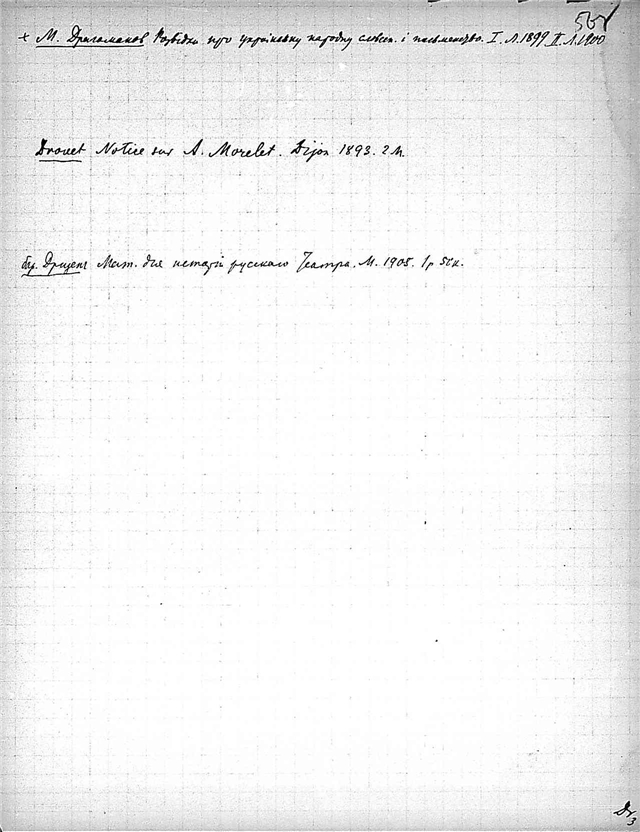 + М. Драгоманов Розвідки про українську народну словесн. і письменство. I. Л. 1899 II. Л. 1900
Drouet Notice sur A. Morelet. Dijon 1893. 2 M.
бар. Дризен Мат. для исторіи русскаго Театра. М. 1905. 1 р 50 к.
Dr
3